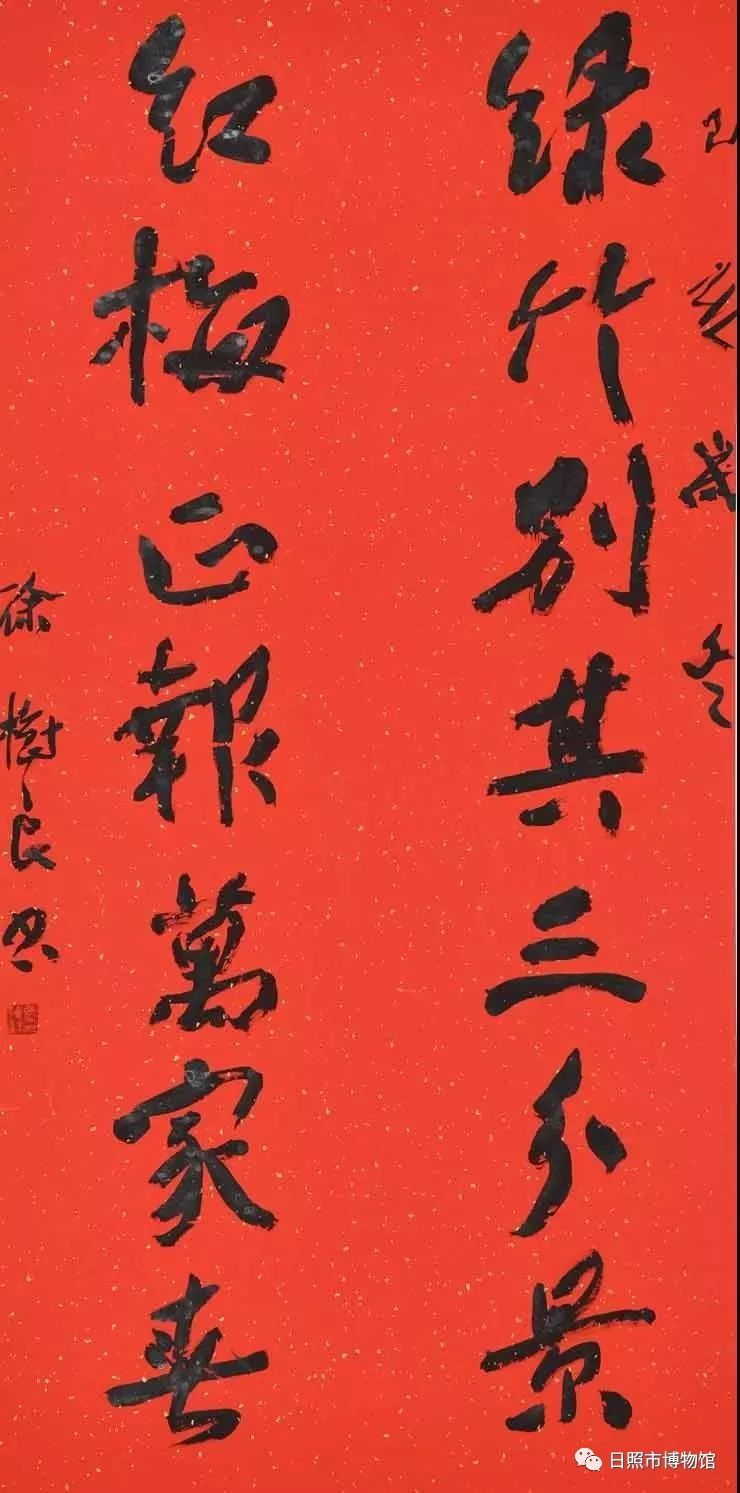 己亥歲冬
绿竹别其三分景
红梅正報萬家春
徐樹良书
日照市博物馆